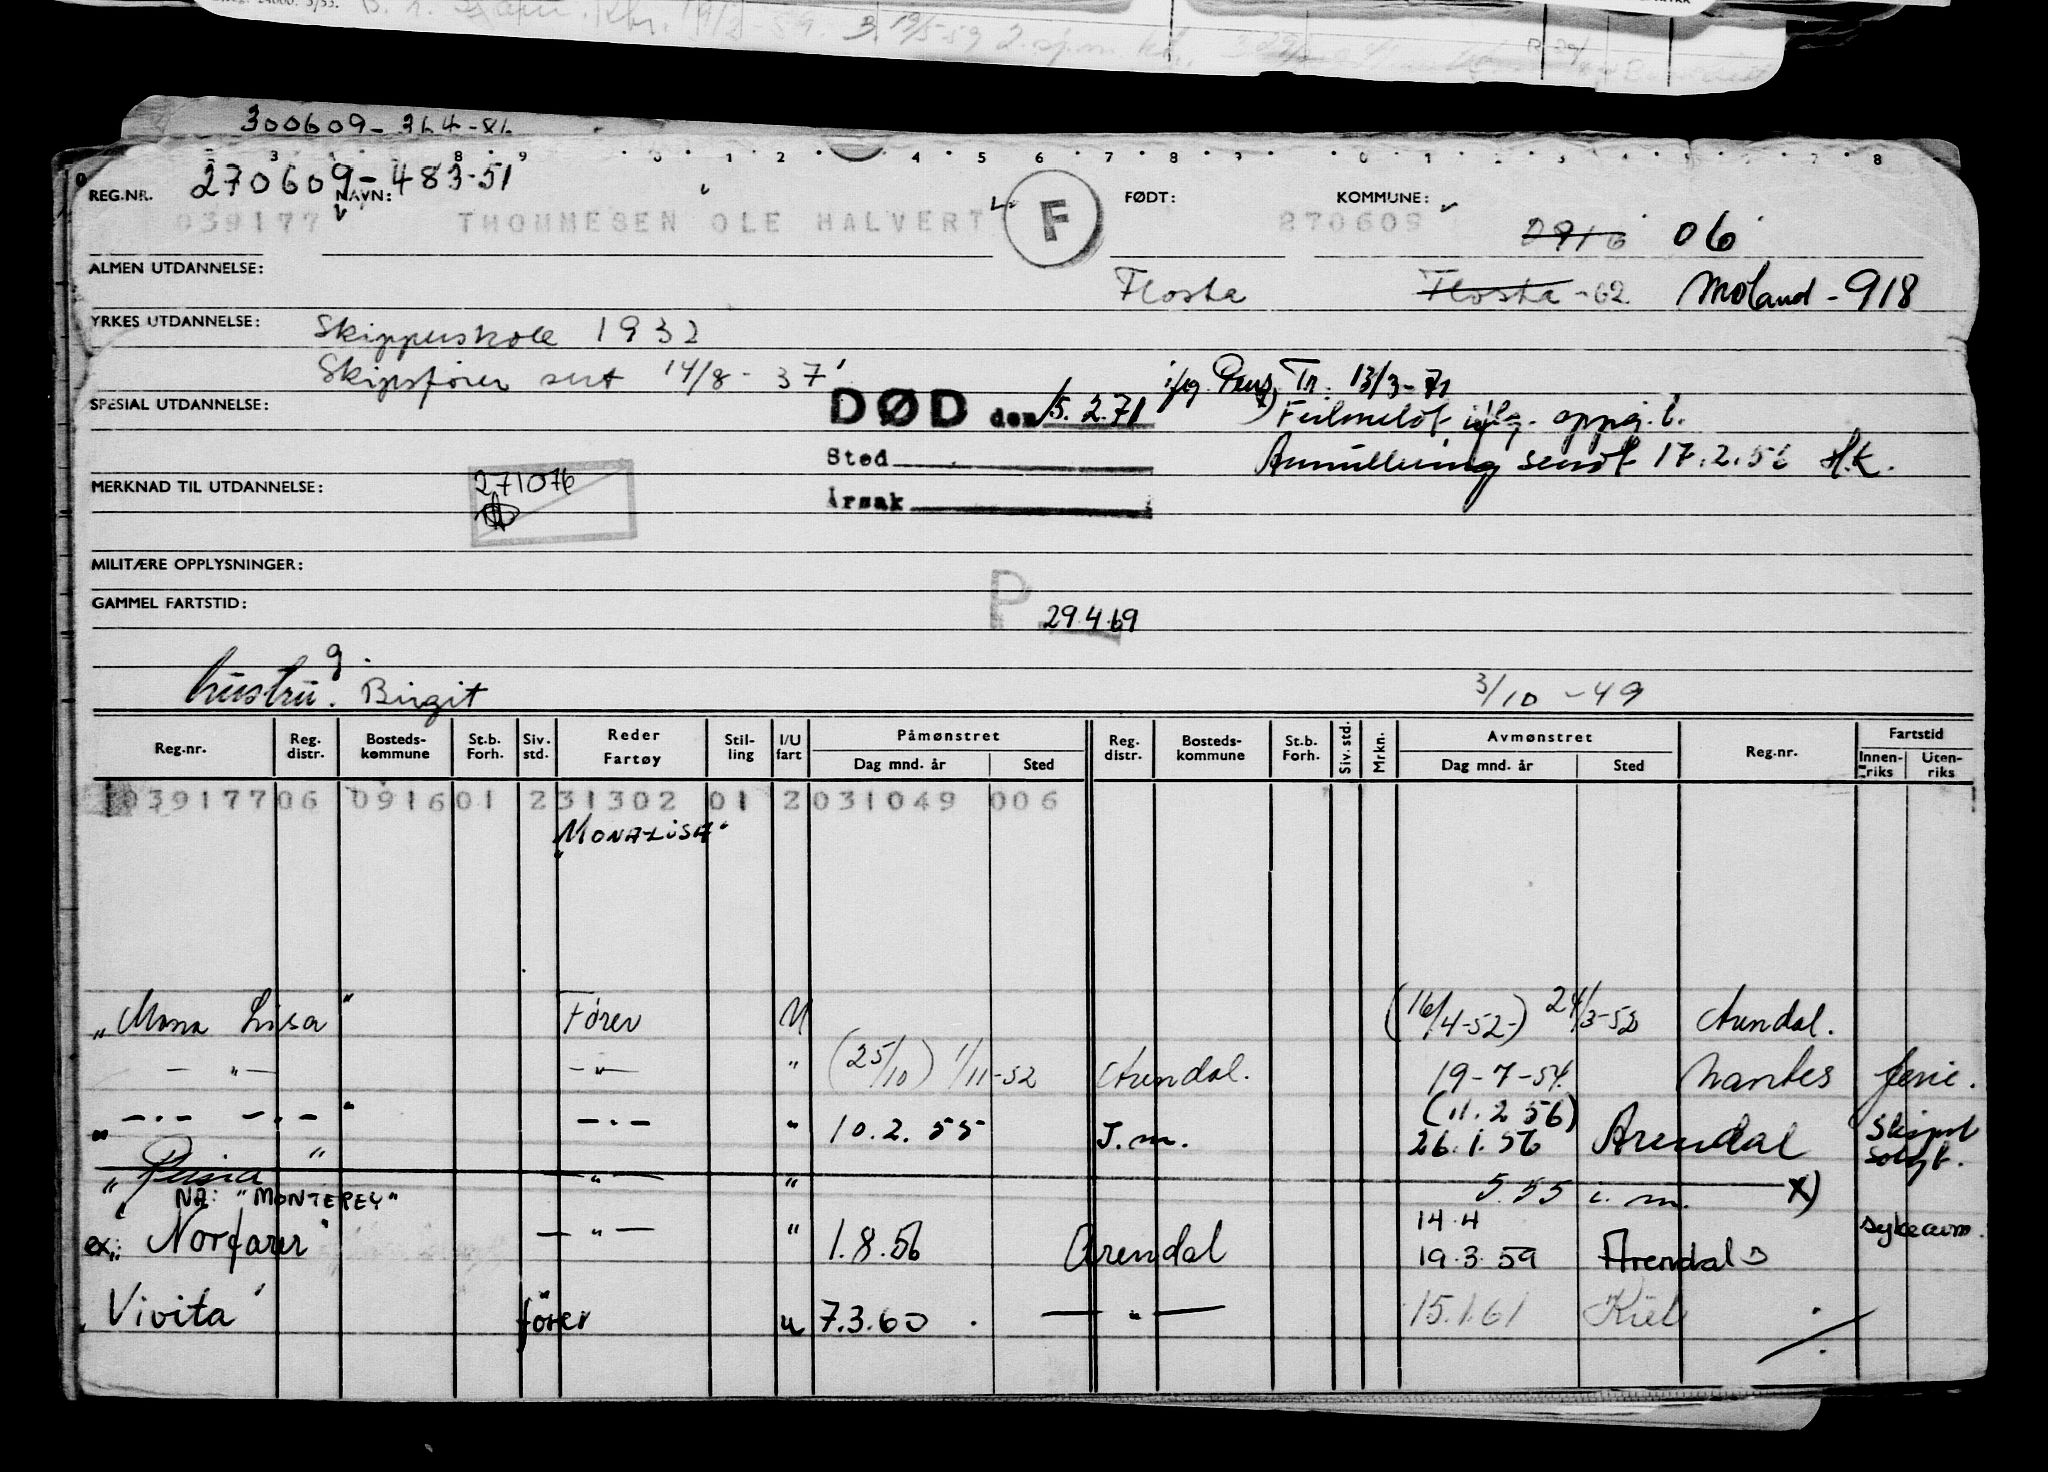 300609-364-86
3 8 9 0 1 2 4 5 6 7 8 9 0 1 2 3 4 5 6 7 8
REG.NR. 270609-483-51 NAVN: FØDT: KOMMUNE:
039177 THOMMESEN OLE HALVERT F 270609 0916 06
ALMEN UTDANNELSE: Flosta Flosta -62 Moland - 918
YRKES UTDANNELSE: Skipperskole 1932
Skipsfører sert 14/8 - 37
iflg. Pens. Tr. 13/3-71
SPESIAL UTDANNELSE: DØD den 15.2.71 x) Feilmeldt iflg. oppg. f.
Sted Annullering sendt 17.2.56 H.K.
MERKNAD TIL UTDANNELSE: 271076
Årsak
MILITÆRE OPPLYSNINGER:
GAMMEL FARTSTID: P 29.4.69
g.
hustru. Birgit 3/10 -49
Reg.nr. Reg. distr. Bosteds-kommune St.b. Forh. Siv. std. Reder Fartøy Stil-ling I/U fart Påmønstret Dag mnd. år Sted Reg. distr. Bosteds-kommune St.b. Forh. Siv. std. Mrkn. Avmønstret Dag mnd. år Sted Reg.nr. Fartstid Innen-riks Uten-riks
039177 06 0916 01 2 31302 01 2 031049 006
"MONA LISA"
"Mona Lisa" Fører U (16/4-52-) 24/3-52 Arendal.
- " - - " - " (25/10) 1/11-52 Arendal. 19-7-54 Nantes ferie.
(11.2 56)
" -.- -.- " -.- " 10.2.55 I.m. 26.1.56 Arendal Skipet solgt.
" " - " - " 5.55 i.m. x)
Nå: "MONTEREY"
14.4
ex: "Norfarer" - " - " 1.8.56 Arendal 19.3.59 Arendal sykeavm.
Vivita fører u 7.3.60 - " - 15.1.61 Kiel